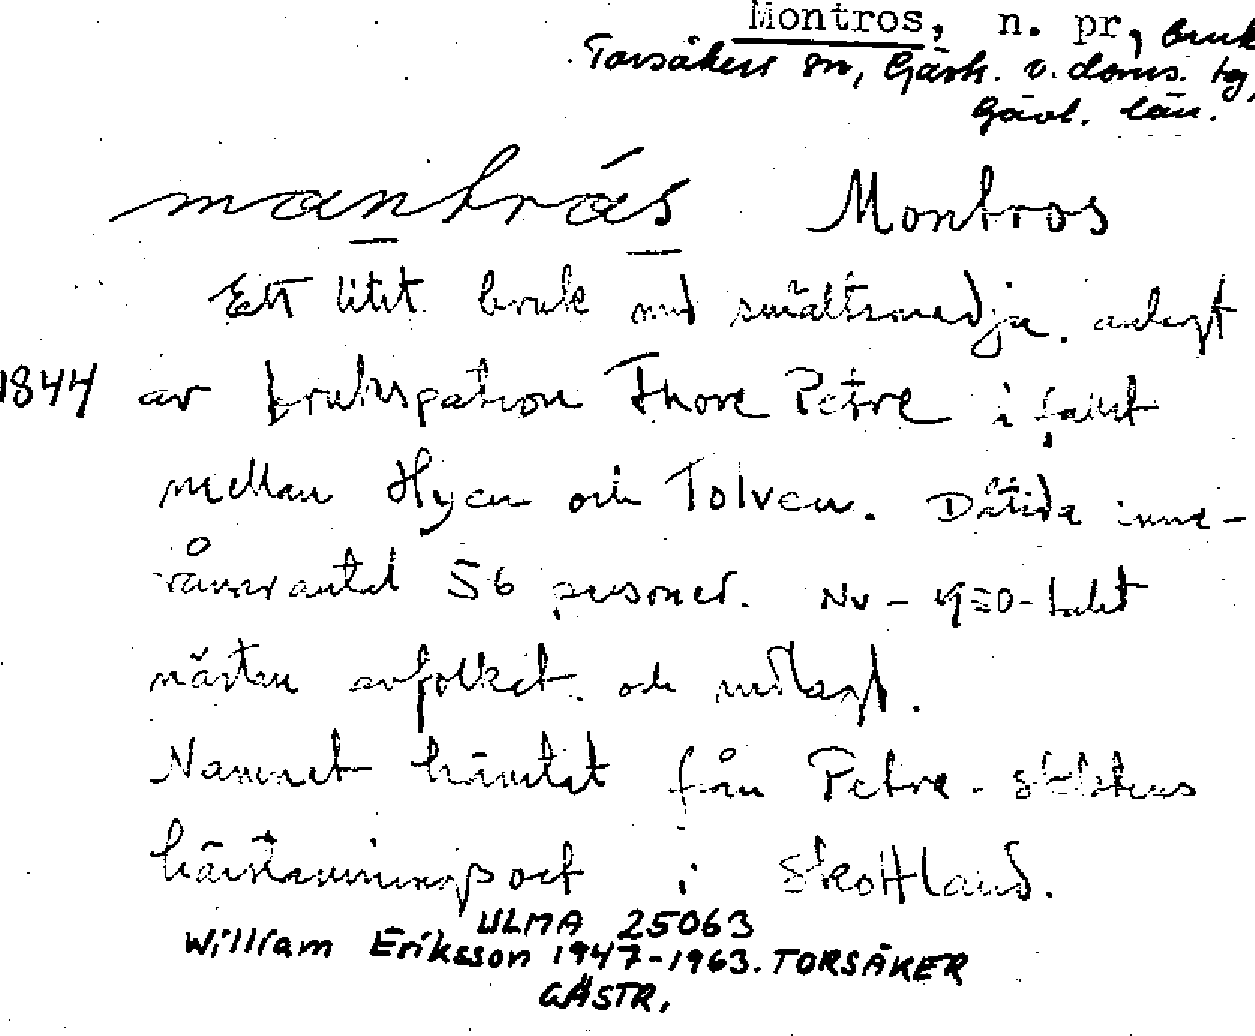 Montros, n. pr, bruk
Torsåkers sn, Gästr. v. doms. tg,
Gävl. län.
mantrås Montros
Ett litet bruk med smältsmedja. anlagt
1844 av brukspatron Thore Petre i fallet
mellan Hyen och Tolven. Dåtida inne-
vånarantal 56 personer. Nu - 1950-talet
nästan avfolket. och nedlagt.
Namnet hämtat från Petre-släktens
härstamningsort i Skottland.
ULMA 25063
William Eriksson 1947-1963. TORSÅKER
GÄSTR,